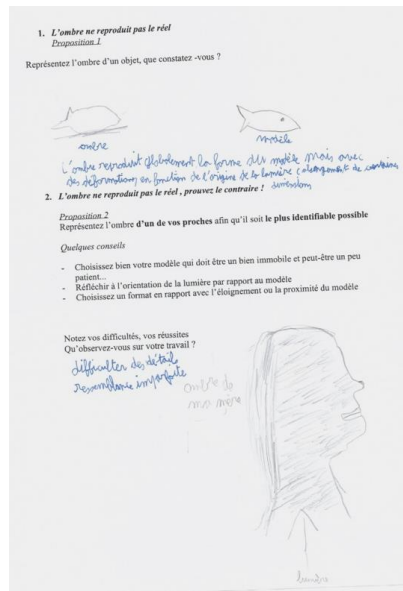 1. L'ombre ne reproduit pas le réel
Proposition 1
Représentez l'ombre d'un objet, que constatez -vous ?
ombre
modèle
L'ombre reproduit globalement la forme du modèle mais avec
des déformations en fonction de l'origine de la lumière (allongement de certaines
dimensions
2. L'ombre ne reproduit pas le réel , prouvez le contraire !
Proposition 2
Représentez l'ombre d'un de vos proches afin qu'il soit le plus identifiable possible
Quelques conseils
- Choisissez bien votre modèle qui doit être un bien immobile et peut-être un peu
patient...
- Réfléchir à l'orientation de la lumière par rapport au modèle
- Choisissez un format en rapport avec l'éloignement ou la proximité du modèle
Notez vos difficultés, vos réussites
Qu'observez-vous sur votre travail ?
difficulter des détails
ressemblance imparfaite
ombre de
ma mère
lumière